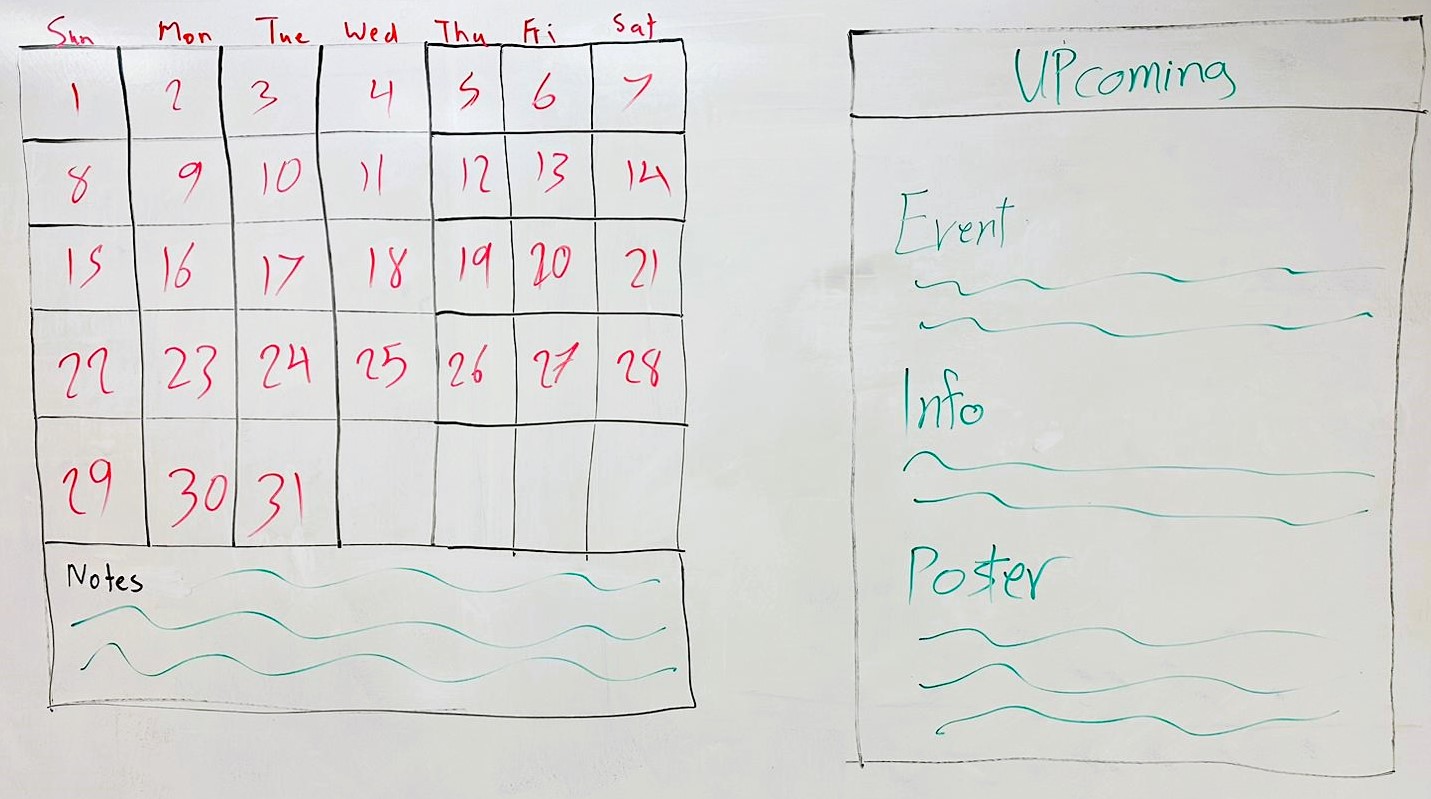 Sun Mon Tue Wed Thu Fri Sat
1 2 3 4 5 6 7
8 9 10 11 12 13 14
15 16 17 18 19 20 21
22 23 24 25 26 27 28
29 30 31
Notes
UPcoming
Event
Info
Poster